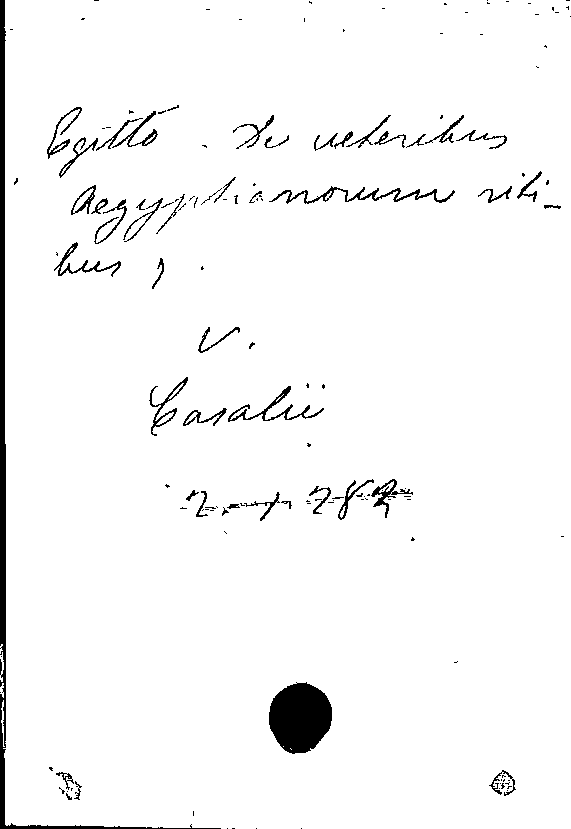 Egitto. De veteribus
Aegyptianorum riti-
bus,.
V.
Casalii